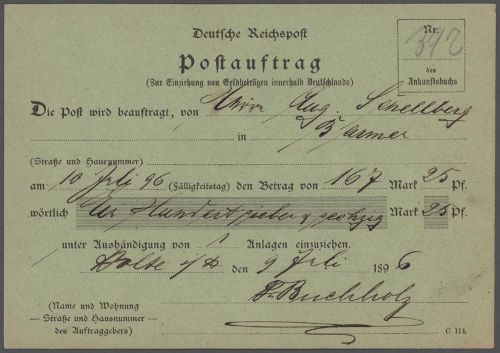 Deutsche Reichspost
Nr.
392
des
Ankunftsbuchs
Postauftrag
(Zur Einziehung von Geldbeträgen innerhalb Deutschlands)
Die Post wird beauftragt, von Herrn Aug. Schellberg
in Barmen
(Straße und Hausnummer)
am 10 Juli 96 (Fälligkeitstag) den Betrag von 167 Mark 25 Pf.
wörtlich Hundert sieben & sechzig Mark 25 Pf.
unter Aushändigung von 1 Anlagen einzuziehen.
den 9 Juli 1896
F. Buchholz
(Name und Wohnung
— Straße und Hausnummer —
des Auftraggebers)
C. 114.